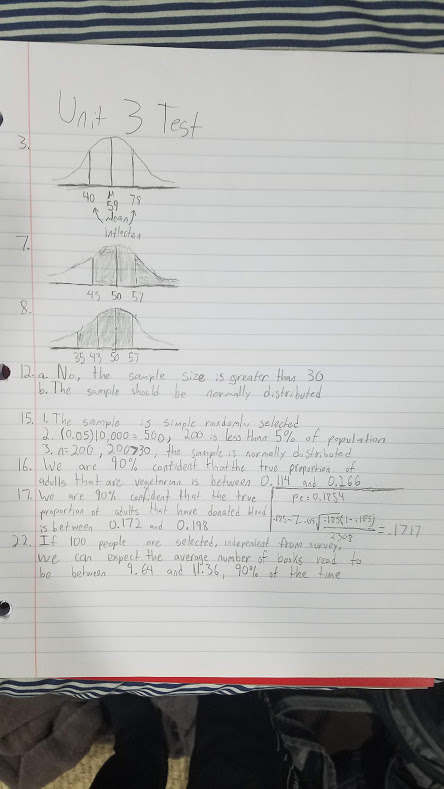 Unit 3 Test
3.
40 M 78
59
Mean
inflection
7.
43 50 57
8.
35 43 50 57
12. a. No, the sample size is greater than 30
b. The sample should be normally distributed
15. 1. The sample is simple randomly selected
2. (0.05)10,000 = 500, 200 is less than 5% of population
3. n=200, 200>30, the sample is normally distributed
16. We are 90% confident that the true proportion of
adults that are vegetarian is between 0.114 and 0.266
17. We are 90% confident that the true
proportion of adults that have donated blood
is between 0.172 and 0.198
pe = 0.1854
.185(1-.185)
2308
= .1717
22. If 100 people are selected, independent from survey,
we can expect the average number of books read to
be between 9.64 and 11.36, 90% of the time